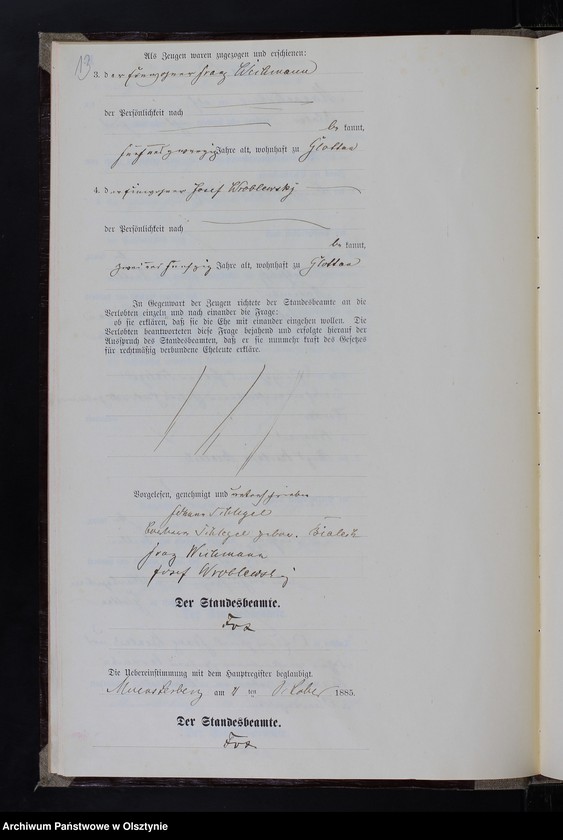 13
Als Zeugen waren zugezogen und erschienen:
3. der Einwohner Franz Weichmann
der Persönlichkeit nach
be kannt,
fünfundzwanzig Jahre alt, wohnhaft zu Glottau
4. der Einwohner Josef Wroblewsky
der Persönlichkeit nach
be kannt,
zweiundfünfzig Jahre alt, wohnhaft zu Glottau
In Gegenwart der Zeugen richtete der Standesbeamte an die
Verlobten einzeln und nach einander die Frage:
ob sie erklären, daß sie die Ehe mit einander eingehen wollen. Die
Verlobten beantworteten diese Frage bejahend und erfolgte hierauf der
Ausspruch des Standesbeamten, daß er sie nunmehr kraft des Gesetzes
für rechtmäßig verbundene Eheleute erkläre.
Vorgelesen, genehmigt und unterschrieben
Johann Schlegel
Barbara Schlegel gebor.
Franz Weichmann
Josef Wroblewsky
Der Standesbeamte.
Fox
Die Uebereinstimmung mit dem Hauptregister beglaubigt.
Muensterberg am ten October 1885.
Der Standesbeamte.
Fox
Archiwum Państwowe w Olsztynie